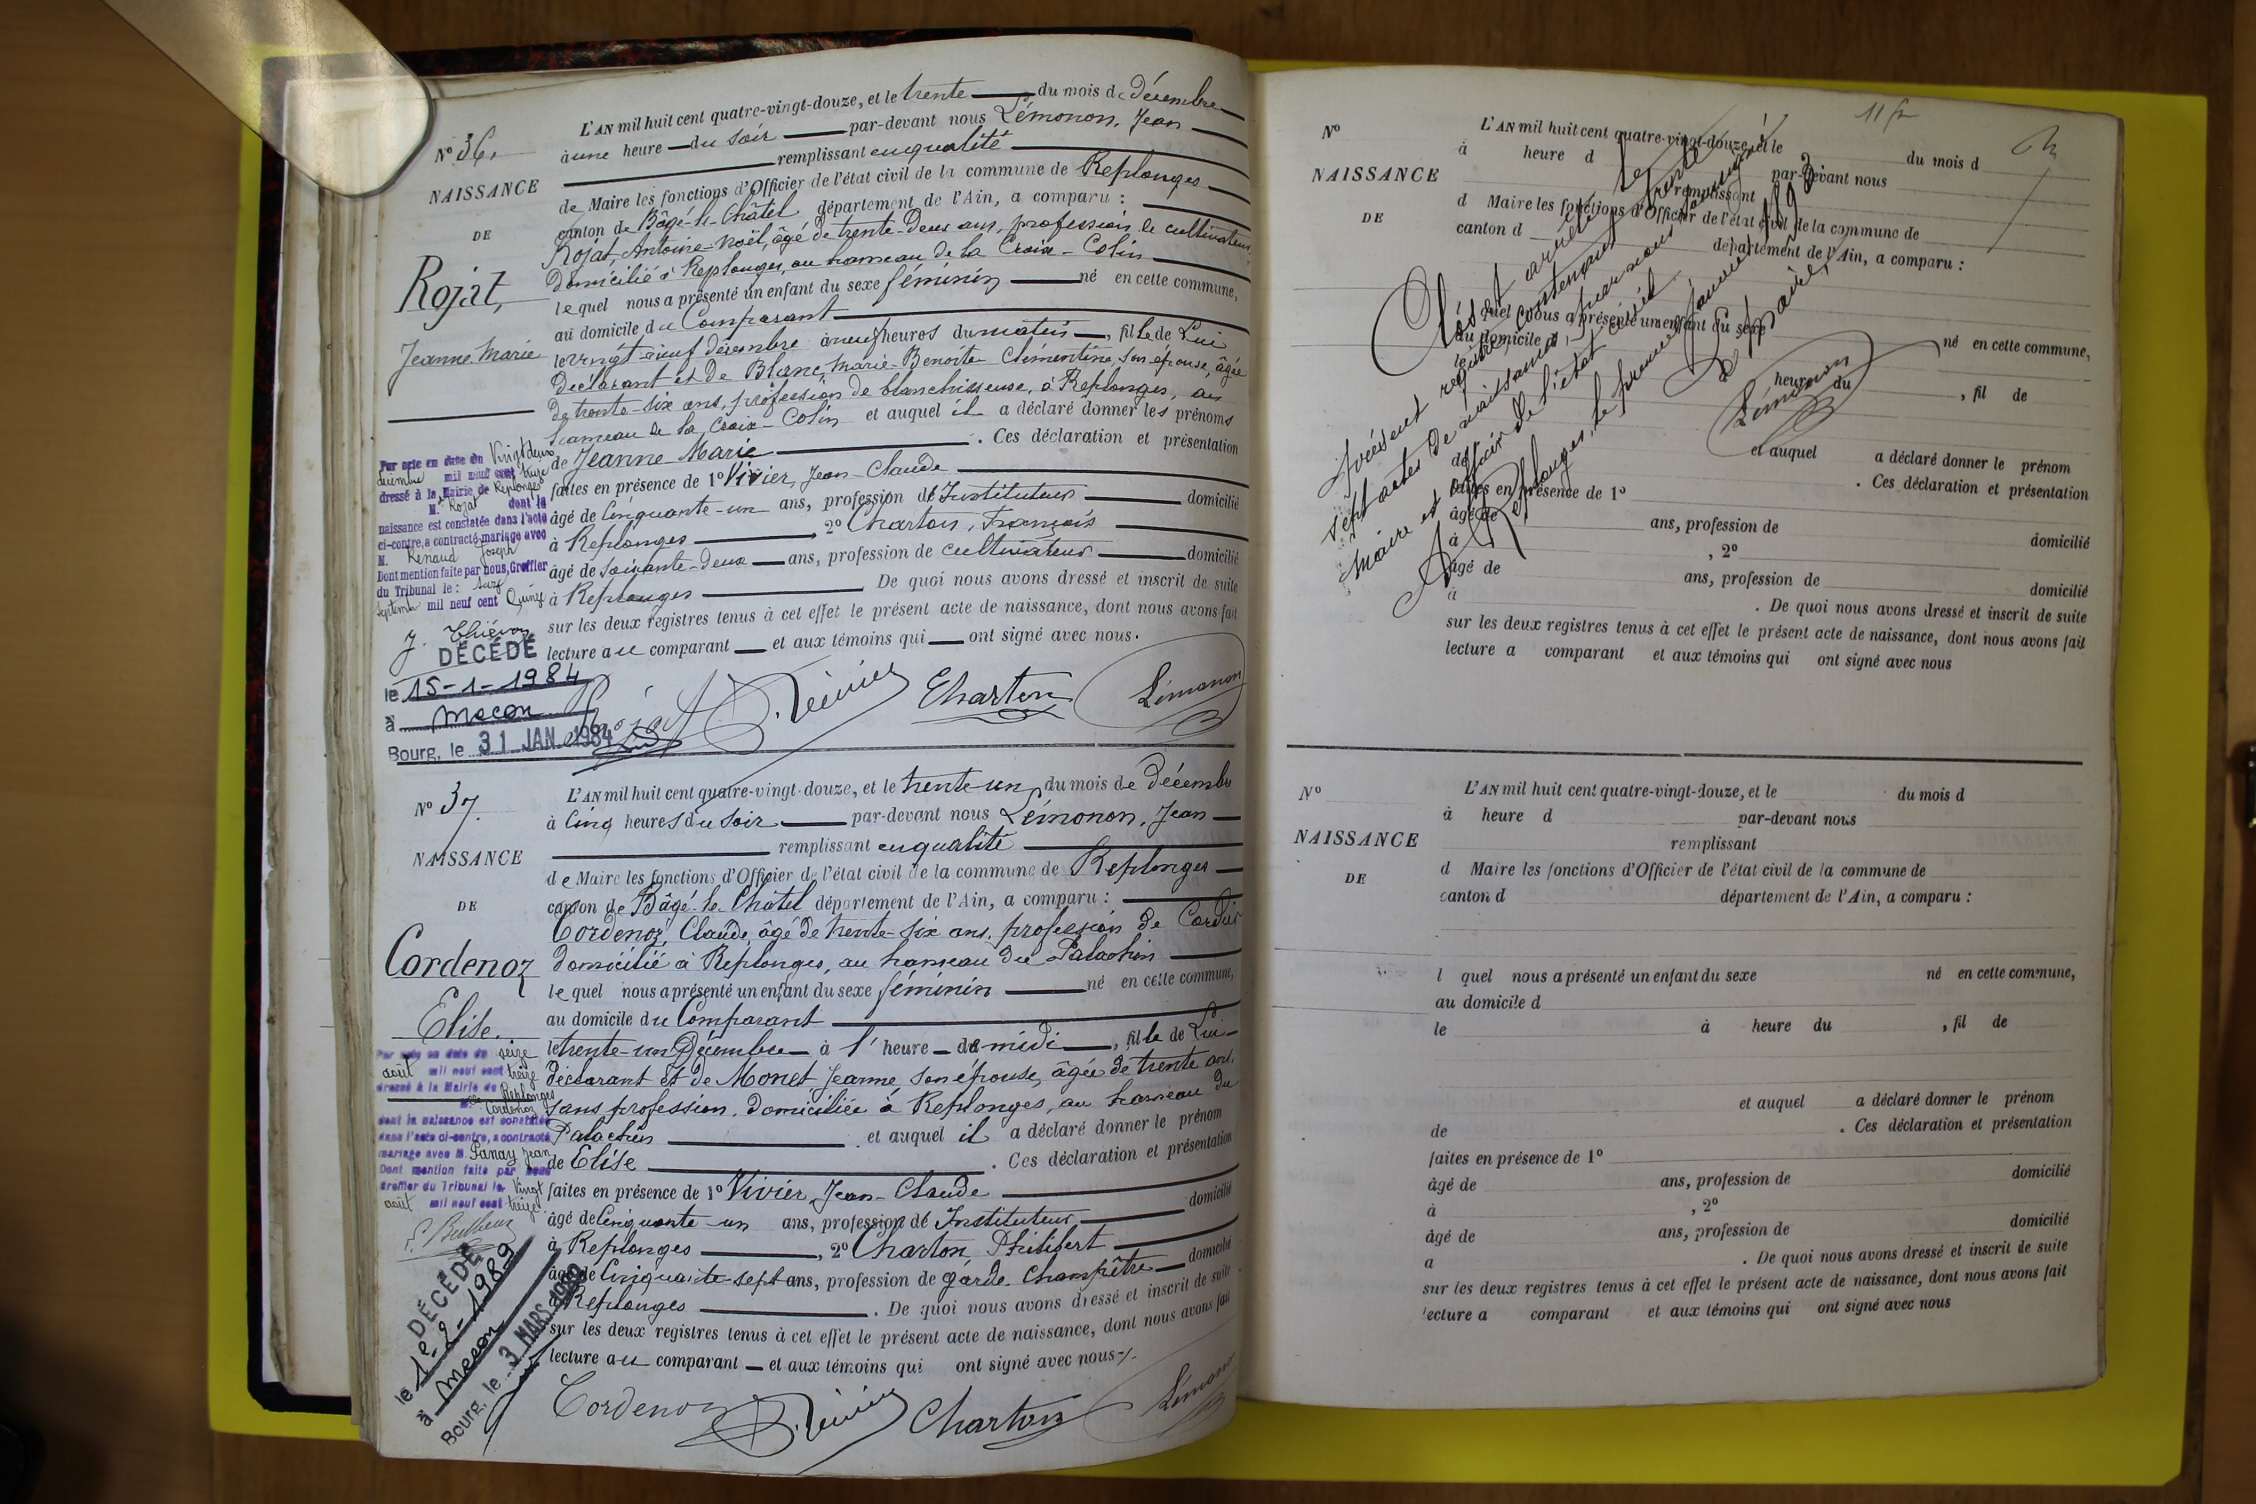 N° 36.
NAISSANCE
DE
Rojat,
Jeanne Marie
L'AN mil huit cent quatre-vingt-douze, et le trente du mois de décembre
à une heure du soir par-devant nous Lémonon, Jean
remplissant en qualité
de Maire les fonctions d'Officier de l'état civil de la commune de Replonges
canton de Bâgé-le-Châtel département de l'Ain, a comparu :
Rojat, Antoine-Noël, âgé de trente-deux ans, profession de cultivateur,
domicilié à Replonges, au hameau de la Croix-Colin
lequel nous a présenté un enfant du sexe féminin né en cette commune,
au domicile du Comparant
le vingt-neuf décembre à neuf heures du matin, fille de Lui
déclarant et de Blanc, Marie-Benoite Clémentine, son épouse, âgée
de trente-six ans, profession de blanchisseuse, à Replonges, au
hameau de la Croix-Colin et auquel il a déclaré donner les prénoms
de Jeanne-Marie. Ces déclaration et présentation
faites en présence de 1° Vivier, Jean-Claude
âgé de Cinquante-un ans, profession de Instituteur domicilié
à Replonges, 2° Charton, François
âgé de soixante-deux ans, profession de cultivateur domicilié
à Replonges De quoi nous avons dressé et inscrit de suite
sur les deux registres tenus à cet effet le présent acte de naissance, dont nous avons fait
lecture au comparant et aux témoins qui ont signé avec nous.
Par acte en date du Vingt deux
décembre mil neuf cent treize
dressé à la Mairie de Replonges
M. Rojat dont la
naissance est constatée dans l'acte
ci-contre, a contracté mariage avec
M. Renaud Joseph
Dont mention faite par nous, Greffier
du Tribunal le :
septembre mil neuf cent Quinze
DÉCÉDÉ
le 15-1-1984
à Macon
Bourg, le 31 JAN 1984
Rojat Vivier Charton Lémonon
N° 37.
NAISSANCE
DE
Cordenoz
Elise.
L'AN mil huit cent quatre-vingt-douze, et le trente-un du mois de décembre
à Cinq heures du soir par-devant nous Lémonon, Jean
remplissant en qualité
de Maire les fonctions d'Officier de l'état civil de la commune de Replonges
canton de Bâgé-le-Châtel département de l'Ain, a comparu :
Cordenoz, Claude, âgé de trente-six ans, profession de Cordier
domicilié à Replonges, au hameau du Palachin
lequel nous a présenté un enfant du sexe féminin né en cette commune,
au domicile du Comparant
le trente-un Décembre à l'heure de midi, fille de Lui
déclarant et de Monet Jeanne, son épouse, âgée de trente ans,
sans profession, domiciliée à Replonges, au hameau du
Palachin et auquel il a déclaré donner le prénom
de Elise. Ces déclaration et présentation
faites en présence de 1° Vivier, Jean-Claude
âgé de Cinquante-un ans, profession de Instituteur, domicilié
à Replonges, 2° Charton Philibert
âgé de Cinquante-sept ans, profession de garde-Champêtre domicilié
à Replonges. De quoi nous avons dressé et inscrit de suite
sur les deux registres tenus à cet effet le présent acte de naissance, dont nous avons fait
lecture au comparant et aux témoins qui ont signé avec nous.
Par acte en date du seize
août mil neuf cent treize
dressé à la Mairie de Replonges
Mlle Cordenoz
dont la naissance est constatée
dans l'acte ci-contre, a contracté
mariage avec M. Panay Jean
Dont mention faite par nous
Greffier du Tribunal le Vingt
août mil neuf cent treize
DÉCÉDÉE
le 1-2-1989
à Macon
Bourg, le 3 MARS 1989
Cordenoz Vivier Charton Lémonon
N°
NAISSANCE
DE
L'AN mil huit cent quatre-vingt-douze, et le du mois d
à heure d par-devant nous
remplissant
d Maire les fonctions d'Officier de l'état civil de la commune de
canton d département de l'Ain, a comparu :
l quel nous a présenté un enfant du sexe né en cette commune,
au domicile d
le heure du , fil de
et auquel a déclaré donner le prénom
de . Ces déclaration et présentation
faites en présence de 1°
âgé de ans, profession de domicilié
à , 2°
âgé de ans, profession de domicilié
à . De quoi nous avons dressé et inscrit de suite
sur les deux registres tenus à cet effet le présent acte de naissance, dont nous avons fait
lecture a comparant et aux témoins qui ont signé avec nous
Clos et arrêté le
présent registre, contenant trente
sept actes de naissance, par nous
Maire et officier de l'état civil
A Replonges, le premier Janvier 1893
Le Maire,
Lémonon
N°
NAISSANCE
DE
L'AN mil huit cent quatre-vingt-douze, et le du mois d
à heure d par-devant nous
remplissant
d Maire les fonctions d'Officier de l'état civil de la commune de
canton d département de l'Ain, a comparu :
l quel nous a présenté un enfant du sexe né en cette commune,
au domicile d
le à heure du , fil de
et auquel a déclaré donner le prénom
de . Ces déclaration et présentation
faites en présence de 1°
âgé de ans, profession de domicilié
à , 2°
âgé de ans, profession de domicilié
a . De quoi nous avons dressé et inscrit de suite
sur les deux registres tenus à cet effet le présent acte de naissance, dont nous avons fait
lecture a comparant et aux témoins qui ont signé avec nous